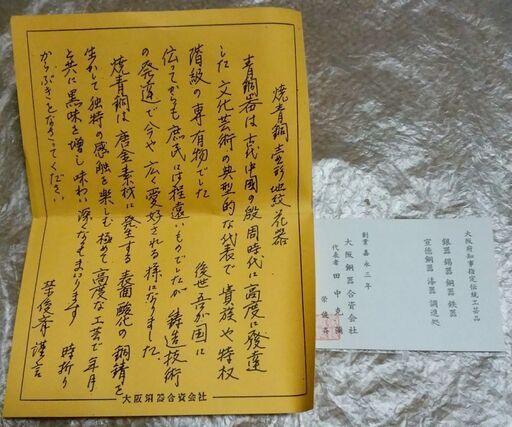 焼青銅壷形地紋花器
青銅器は古代中國の殷周時代に高度に發達
した文化芸術の典型的な代表で貴族や特权
階級の専有物でした　後世吾が國に
伝ってからも庶民には程遠いものでしたが鋳造技術
の発達で今や広く愛好される様になりました
焼青銅は唐金素材に発生する表面酸化の銅錆を
生かして独特の感触を楽しむ極めて高度な工芸で年月
と共に黒味を増し味わい深くなってまいります　時折り
からぶきをなさってください
栄俊斉謹言
大阪銅器合資会社
大阪府知事指定伝統工芸品
銀器 錫器 銅器 鉄器
宣徳銅器 漆器 調進処
創業嘉永三年
大阪銅器合資会社
代表者 田中克彌
栄俊斉